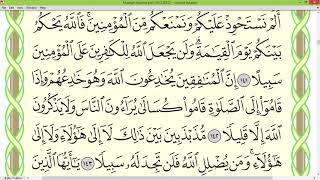 أَلَمْ نَسْتَحْوِذْ عَلَيْكُمْ وَنَمْنَعْكُم مِّنَ ٱلْمُؤْمِنِينَ ۚ فَٱللَّهُ يَحْكُمُ
بَيْنَكُمْ يَوْمَ ٱلْقِيَٰمَةِ ۗ وَلَن يَجْعَلَ ٱللَّهُ لِلْكَٰفِرِينَ عَلَى ٱلْمُؤْمِنِينَ
سَبِيلًا ١٤١ إِنَّ ٱلْمُنَٰفِقِينَ يُخَٰدِعُونَ ٱللَّهَ وَهُوَ خَٰدِعُهُمْ وَإِذَا
قَامُوٓا۟ إِلَى ٱلصَّلَوٰةِ قَامُوا۟ كُسَالَىٰ يُرَآءُونَ ٱلنَّاسَ وَلَا يَذْكُرُونَ
ٱللَّهَ إِلَّا قَلِيلًا ١٤٢ مُّذَبْذَبِينَ بَيْنَ ذَٰلِكَ لَآ إِلَىٰ هَٰٓؤُلَآءِ وَلَآ إِلَىٰ
هَٰٓؤُلَآءِ ۚ وَمَن يُضْلِلِ ٱللَّهُ فَلَن تَجِدَ لَهُۥ سَبِيلًا ١٤٣ يَٰٓأَيُّهَا ٱلَّذِينَ